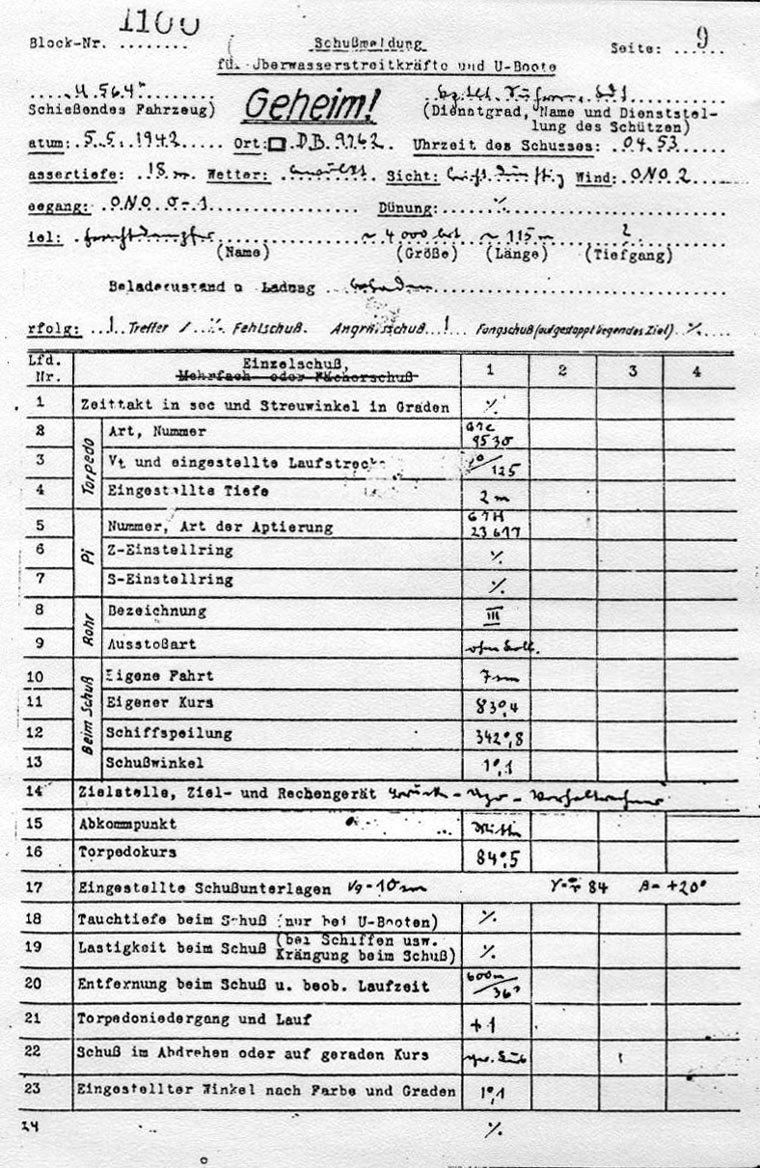 1100
Block-Nr. ........
Schußmeldung
Seite: 9
für Überwasserstreitkräfte und U-Boote
"U 564"
Schießendes Fahrzeug)
Geheim!
(Dienstgrad, Name und Dienststel-
lung des Schützen)
atum: 5.5.1942. Ort: D.B. 9762. Uhrzeit des Schusses: 04.53
assertiefe: 18 m. Wetter: Sicht: Wind: ONO 2
eegang: ONO 0-1 Dünung: ./.
iel: ~ 4000 brt ~ 115 m 2
(Name) (Größe) (Länge) (Tiefgang)
Beladezustand u Ladung beladen
rfolg: 1 Treffer / ./. Fehlschuß. Angriffsschuß 1 Fangschuß (auf gestoppt liegendes Ziel) ./.
Lfd. Nr. Einzelschuß, 1 2 3 4
Mehrfach- oder Fächerschuß
1 Zeittakt in sec und Streuwinkel in Graden ./.
Torpedo
2 Art, Nummer G7e 9530
3 Vt und eingestellte Laufstrecke /125
4 Eingestellte Tiefe 2 m
Pi
5 Nummer, Art der Aptierung G7H 23617
6 Z-Einstellring ./.
7 S-Einstellring ./.
Rohr
8 Bezeichnung III
9 Ausstoßart
Beim Schuß
10 Eigene Fahrt 7 sm
11 Eigener Kurs 83°,4
12 Schiffspeilung 342°,8
13 Schußwinkel 1°,1
14 Zielstelle, Ziel- und Rechengerät
15 Abkommpunkt Mitte
16 Torpedokurs 84°,5
17 Eingestellte Schußunterlagen Vg = 10 sm γ = r 84 β = +20°
18 Tauchtiefe beim Schuß (nur bei U-Booten) ./.
19 Lastigkeit beim Schuß (bei Schiffen usw. Krängung beim Schuß) ./.
20 Entfernung beim Schuß u. beob. Laufzeit 600m /
21 Torpedoniedergang und Lauf + 1
22 Schuß im Abdrehen oder auf geraden Kurs
23 Eingestellter Winkel nach Farbe und Graden 1°,1
24 ./.